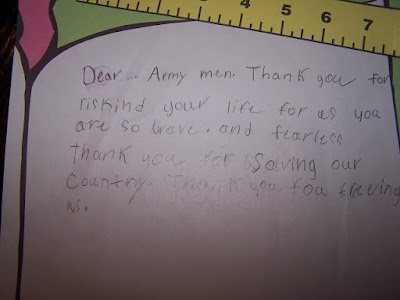 4 5 6 7
Dear. Army men. Thank you for
riskind your life for us you
are so brave. and fearless
Thank you for Saving our
Country. Thank you fou freeing
us.